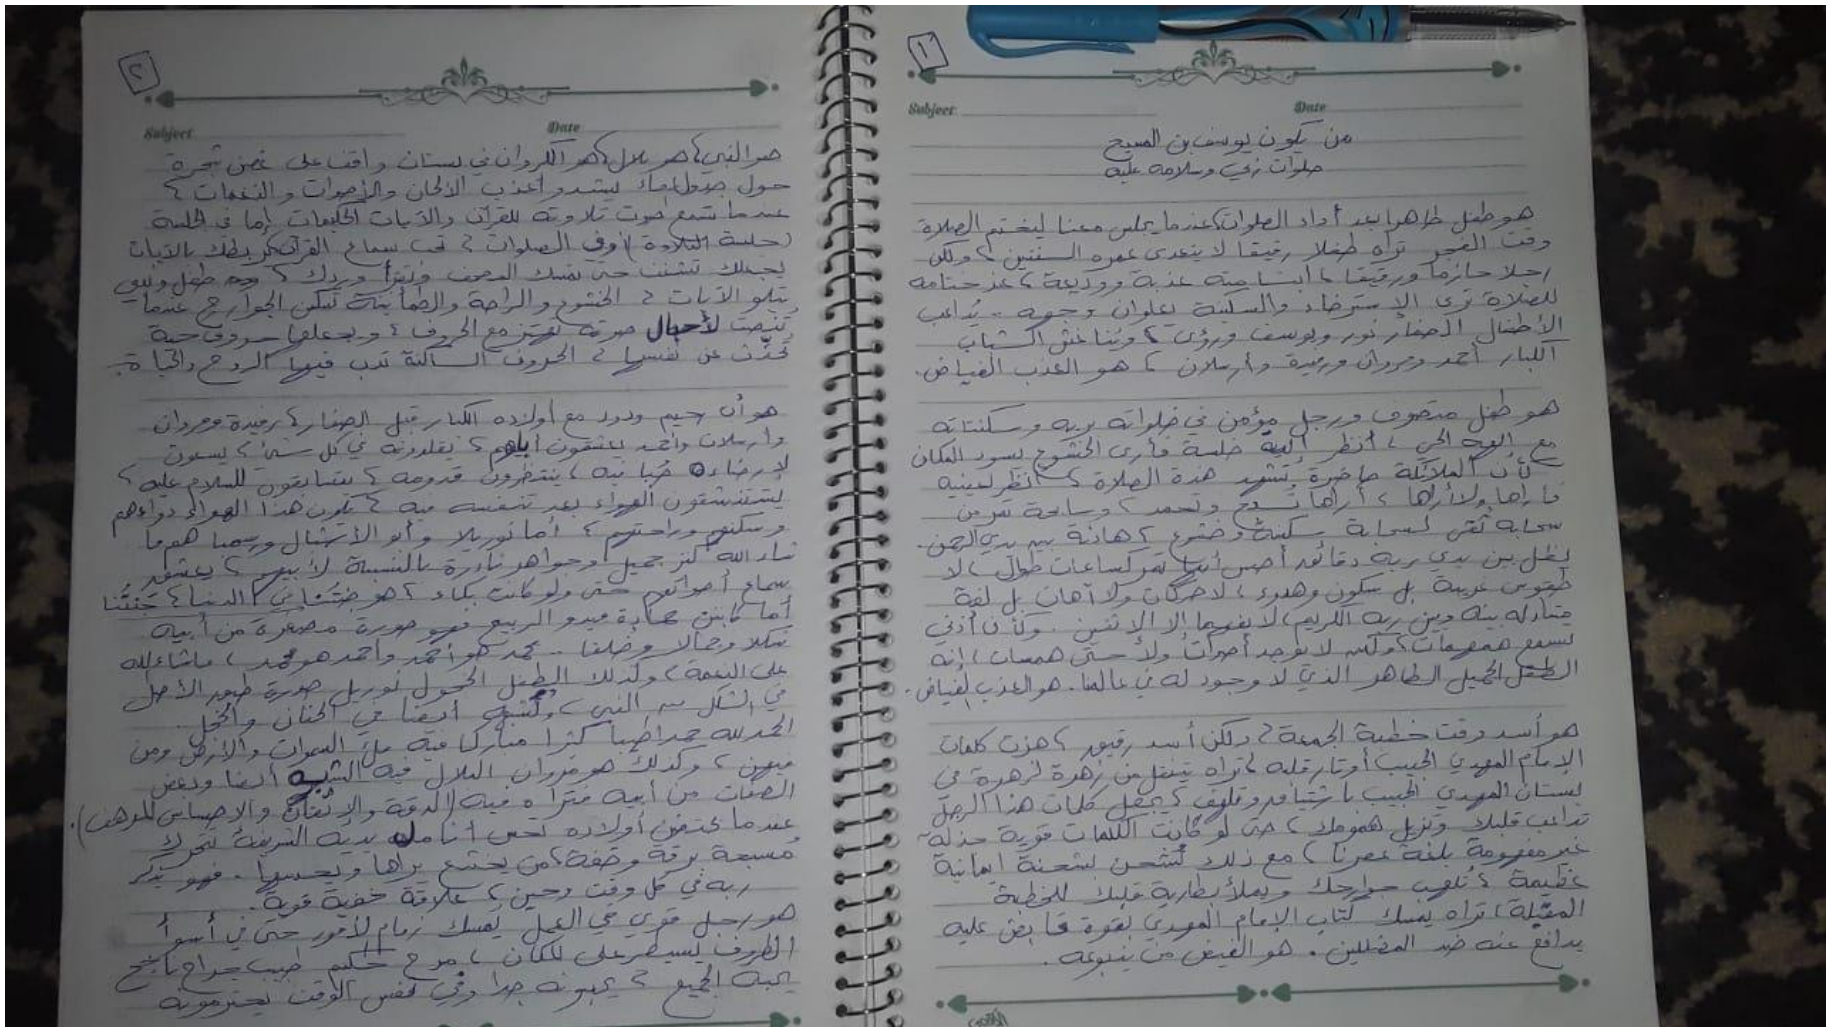 ١
Subject
Date
من يكون يوسف بن المسيح
صلوات ربي وسلامه عليه
هو طفل طاهر بعد أداء الصلوات، عندما يجلس معنا ليختم الصلاة
وقت الفجر تراه طفلا رقيقا لا يتعدى عمره السنتين، ولكن
رجلا حازما ورقيقا، ابتسامته عذبة ووديعة، عند ختامه
للصلاة ترى الإسترخاء والسكينة يعلوان وجهه.. يُداعب
الأطفال الصغار نور ويوسف ورؤى، ويُناغش الشباب
الكبار أحمد ومروان ورفيدة وأرسلان، هو العذب الفياض.
هو طفل متصوف ورجل مؤمن في خلواته بربه وسكناته
مع إلهه الحي، أنظر إليه خلسة فأرى الخشوع يسود المكان
كأن الملائكة حاضرة تشهد هذه الصلاة، أنظر لعينيه
فأراها ولا أراها، أراها تسبح وتحمد، وسابحة من
سحابة لسحابة بسكينة وخشوع، هادئة بين يدي الرحمن.
يظل بين يدي ربه دقائق أحس أنها تمر كساعات طوال، لا
طقوس غريبة بل سكون وهدوء، لا حركات ولا آهات بل لغة
متبادلة بينه وبين ربه الكريم، لا يفهمها إلا الإثنين. وكأن أذني
تسمع همهمات، ولكن لا يوجد أصوات ولا حتى همسات، إنه
الطفل الجميل الطاهر الذي لا وجود له في عالمنا. هو العذب الفياض.
هو أسد وقت خطبة الجمعة، ولكن أسد رقيق، هزت كلمات
الإمام المهدي الحبيب أوتار قلبه، تراه يتنقل من زهرة لزهرة في
بستان المهدي الحبيب باشتياق وتلهف، يجعل كلمات هذا الرجل
تداعب قلبك وتزيل همومك، حتى لو كانت الكلمات قوية جذلة
غير مفهومة بلغة عصرنا، مع ذلك تُشحن بشحنة إيمانية
عظيمة، تُلهب جوارحك ويملأ بطارية قلبك للخطبة
المقبلة، تراه يمسك كتاب الإمام المهدي بقوة قابض عليه
يدافع عنه ضد المضللين. هو الفيض من ينبوعه.
٢
Subject
Date
هو النبي، هو بلال، هو الكروان في بستان واقف على غصن شجرة
حول جدول ماء ليشدو أعذب الألحان والأصوات والنغمات،
عندما تسمع صوت تلاوته للقرآن والآيات الحكيمات إما في الجلسة
(جلسة التلاوة) أو في الصلوات، تحب سماع القرآن، يربطك بالآيات
يجعلك تشتت حتى تمسك المصحف وتقرأ وردك، طفل ونبي
يتلو الآيات، الخشوع والراحة والطمأنينة تسكن الجوارح عندما
تُنصت لأحبال صوته تهتز مع الحروف، ويجعلها حروف حية
تُحدّث عن نفسها، الحروف الساكنة تدب فيها الروح والحياة.
هو أب رحيم ودود مع أولاده الكبار قبل الصغار، رفيدة ومروان
وأرسلان وأحمد يعشقون أباهم، يقلدونه في كل شئ، يسعون
لإرضاءه حُبا فيه، ينتظرون قدومه، يتسابقون للسلام عليه،
يستنشقون الهواء بعد تنفسه فيه، يكون هذا الهواء دواءهم
وسكنهم وراحتهم، أما نوريلا وأبو الأشبال هم ما
شاء الله كنز جميل وجواهر نادرة بالنسبة لأبيهم، يعشق
سماع أصواتهم حتى ولو كانت بكاء، هو جنتنا في الدنيا، جَنتُنا
أما فهو صورة مصغرة من أبيه
شكلا وجمالا وخلقا.. محمد هو أحمد وأحمد هو محمد، ماشاءالله
على النعمة، وكذلك الطفل الخجول نوريل صورة طبق الأصل
في الشكل من النبي، وتُشبهه أيضا في الحنان والخجل.
الحمدلله حمدا طيبا كثيرا مباركا فيه ملئ السموات والأرض ومن
فيهن، وكذلك هو مروان البلال فيه الشبه أيضا وبعض
الصفات من أبيه فتراه فيه (الدقة والإتقان والإحساس المرهف).
عندما يحتضن أولاده تحس أنامل يديه الشريفة تتحرك
مُسبحة برقة وخفة، من يخشع يراها ويحسها. فهو يذكر
ربه في كل وقت وحين، علاقة خفية قوية.
هو رجل قوي في العمل يمسك زمام الأمور حتى في أسوأ
الظروف يسيطر على المكان، مرح حكيم طبيب جراح ناجح
يحبه الجميع، يحبونه جدا وفي نفس الوقت يحترمونه